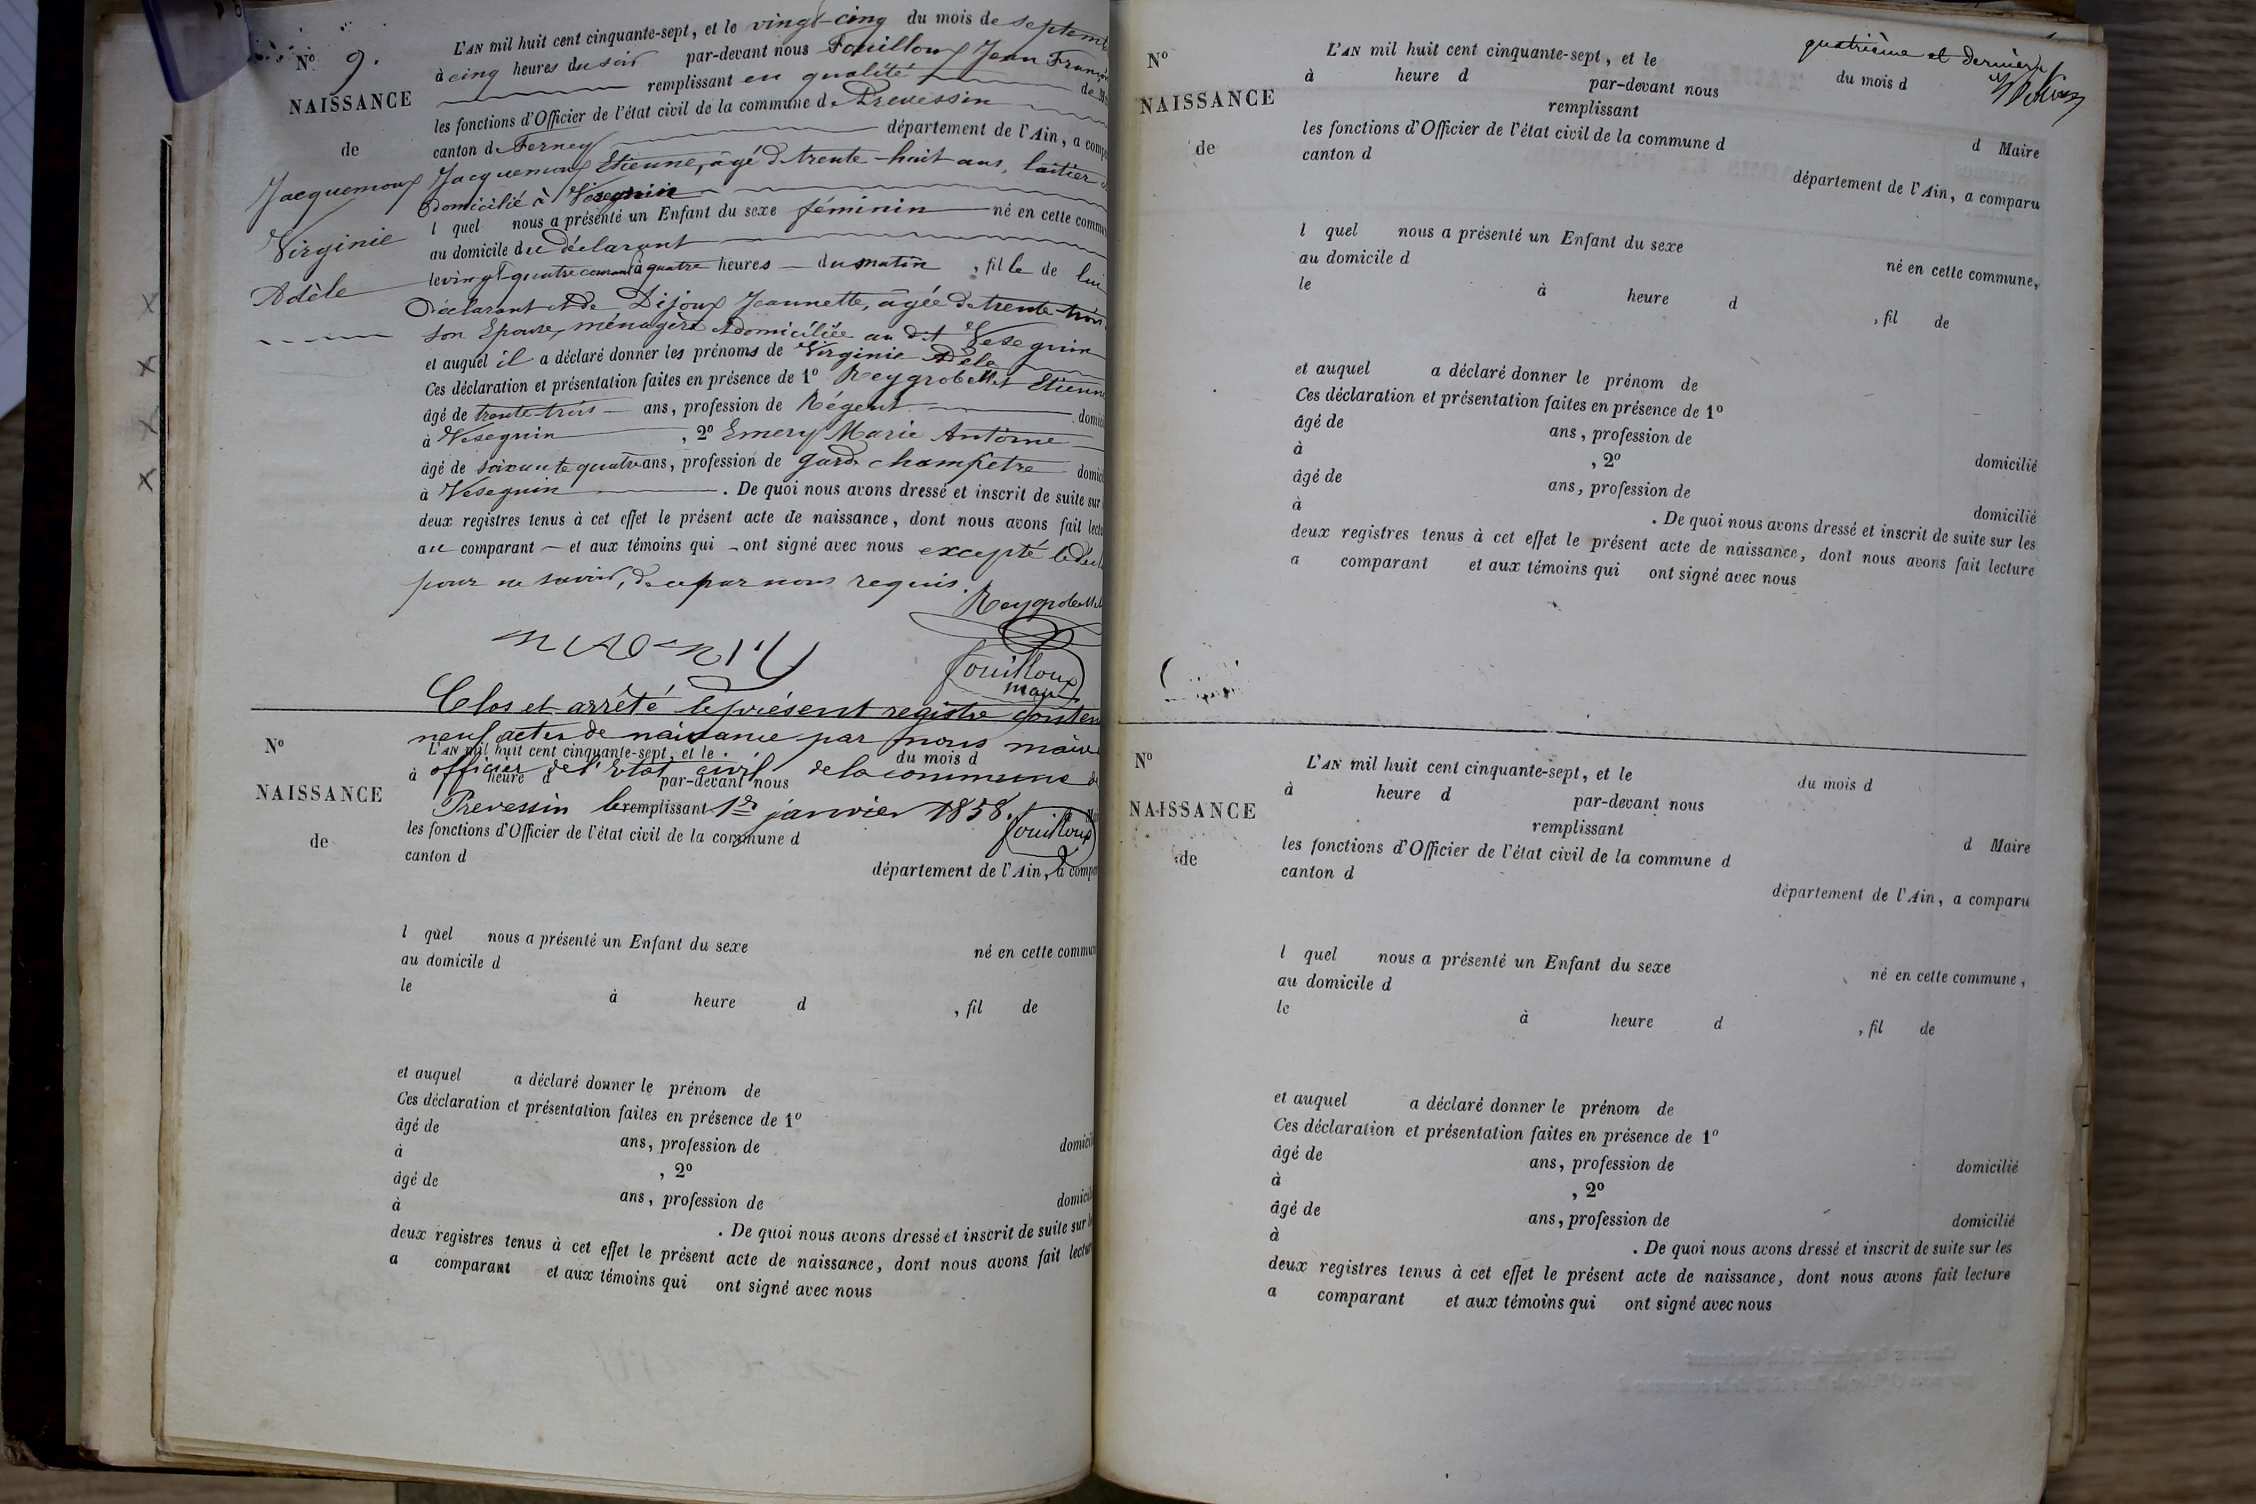 L'AN mil huit cent cinquante-sept, et le vingt-cinq du mois de septemb
N° 9.
à cinq heures du soir par-devant nous Fouilloux Jean Franç
remplissant en qualité de M
NAISSANCE
les fonctions d'Officier de l'état civil de la commune de Prevessin
de
canton de Ferney département de l'Ain, a compa
Jacquemoux
Jacquemoux Etienne, âgé de trente-huit ans, laitier
domicilié à Vesegnin
Virginie
l quel nous a présenté un Enfant du sexe féminin né en cette commu
au domicile du déclarant
Adèle
le vingt quatre courant à quatre heures du matin, fille de lui
Déclarant et de Dijoux Jeannette, âgée de trente-trois
son Epouse, ménagère domiciliée au dit Vesegnin
et auquel il a déclaré donner les prénoms de Virginie Adèle
Ces déclaration et présentation faites en présence de 1° Reygrobellet Etienne
âgé de trente-trois ans, profession de Régent domici
à Vesegnin, 2° Emery Marie Antoine
âgé de soixante quatre ans, profession de garde champêtre domici
à Vesegnin. De quoi nous avons dressé et inscrit de suite sur
deux registres tenus à cet effet le présent acte de naissance, dont nous avons fait lectu
au comparant et aux témoins qui ont signé avec nous excepté le décl
pour ne savoir, de ce par nous requis.
Reygrobellet
Fouilloux
maire
Clos et arrêté le présent registre conten
neuf actes de naissance par nous maire
N°
L'AN mil huit cent cinquante-sept, et le du mois d
officier de l'Etat civil de la commune de
à heure d par-devant nous
NAISSANCE
Prevessin le 1er janvier 1858.
remplissant
Fouilloux
les fonctions d'Officier de l'état civil de la commune d
de
canton d
département de l'Ain, a compa
l quel nous a présenté un Enfant du sexe né en cette commun
au domicile d
le à heure d , fil de
et auquel a déclaré donner le prénom de
Ces déclaration et présentation faites en présence de 1°
âgé de ans, profession de domicili
à , 2°
âgé de ans, profession de domicili
à . De quoi nous avons dressé et inscrit de suite sur l
deux registres tenus à cet effet le présent acte de naissance, dont nous avons fait lectur
a comparant et aux témoins qui ont signé avec nous
quatrième et dernière
N°
L'AN mil huit cent cinquante-sept, et le du mois d
à heure d par-devant nous
NAISSANCE
remplissant d Maire
les fonctions d'Officier de l'état civil de la commune d
de
canton d département de l'Ain, a comparu
l quel nous a présenté un Enfant du sexe né en cette commune,
au domicile d
le à heure d , fil de
et auquel a déclaré donner le prénom de
Ces déclaration et présentation faites en présence de 1°
âgé de ans, profession de domicilié
à , 2°
âgé de ans, profession de domicilié
à . De quoi nous avons dressé et inscrit de suite sur les
deux registres tenus à cet effet le présent acte de naissance, dont nous avons fait lecture
a comparant et aux témoins qui ont signé avec nous
N°
L'AN mil huit cent cinquante-sept, et le du mois d
à heure d par-devant nous
NAISSANCE
remplissant d Maire
les fonctions d'Officier de l'état civil de la commune d
de
canton d département de l'Ain, a comparu
l quel nous a présenté un Enfant du sexe né en cette commune,
au domicile d
le à heure d , fil de
et auquel a déclaré donner le prénom de
Ces déclaration et présentation faites en présence de 1°
âgé de ans, profession de domicilié
à , 2°
âgé de ans, profession de domicilié
à . De quoi nous avons dressé et inscrit de suite sur les
deux registres tenus à cet effet le présent acte de naissance, dont nous avons fait lecture
a comparant et aux témoins qui ont signé avec nous